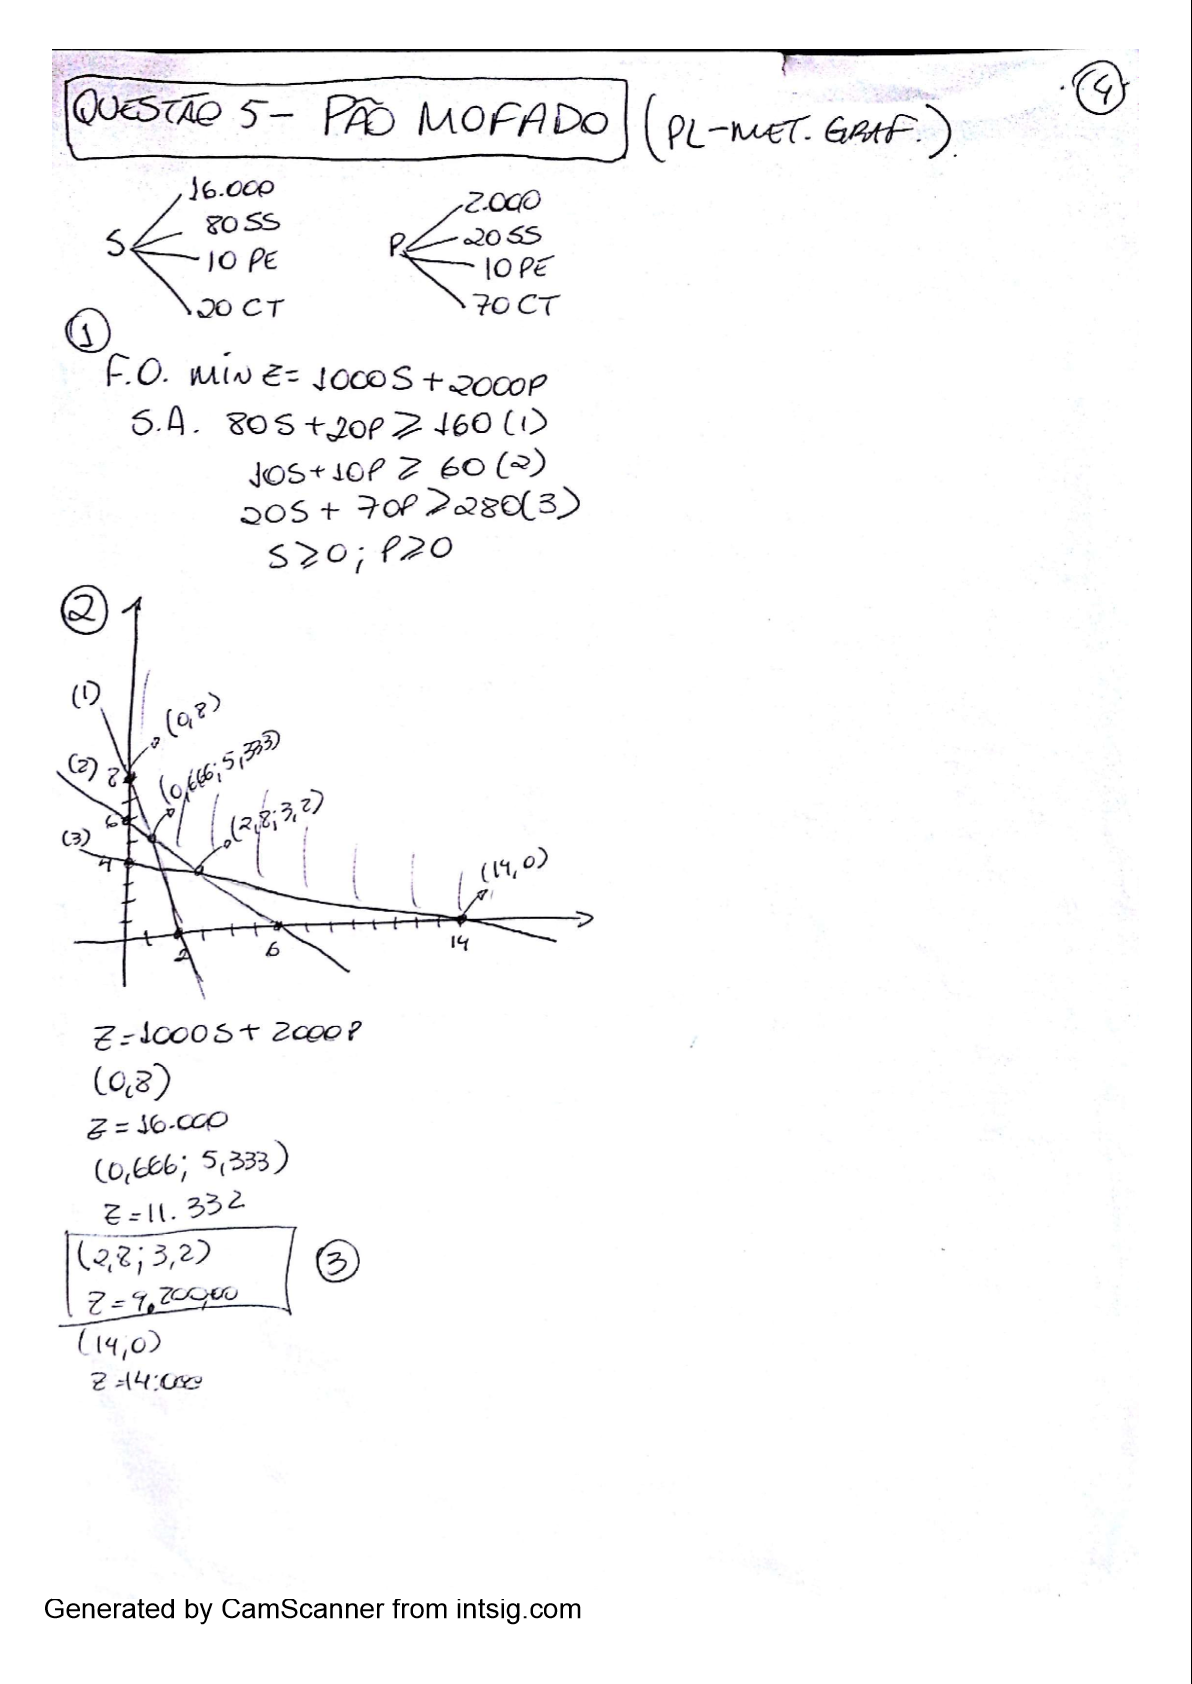 4
QUESTÃO 5 - PÃO MOFADO (PL-MET. GRAF.)
S
16.000
80 SS
10 PE
20 CT
P
2.000
20 SS
10 PE
70 CT
1
F.O. MIN Z= 1000S + 2000P
S.A. 80S + 20P ⩾ 160 (1)
10S + 10P ⩾ 60 (2)
20S + 70P ⩾ 280 (3)
S⩾0; P⩾0
2
(1)
(0,8)
(2)
8
(0,666; 5,333)
6
(2,8; 3,2)
(3)
4
(14,0)
2
6
14
Z=1000S + 2000P
(0,8)
Z = 16.000
(0,666; 5,333)
Z = 11.332
(2,8; 3,2)
3
Z = 9.200,00
(14,0)
Z=14.000
Generated by CamScanner from intsig.com